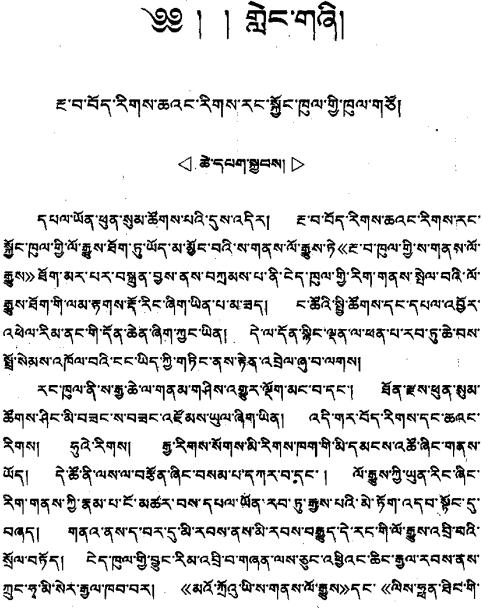 ༄༅། ། གླེང་གཞི།
རྔ་བ་བོད་རིགས་ཆའང་རིགས་རང་སྐྱོང་ཁུལ་གྱི་ཁུལ་གཙོ།
ཚེ་དཔག་སྐྱབས།
དཔལ་ཡོན་ཕུན་སུམ་ཚོགས་པའི་དུས་འདིར། རྔ་བ་བོད་རིགས་ཆའང་རིགས་རང་
སྐྱོང་ཁུལ་གྱི་ལོ་རྒྱུས་ཐོག་ཏུ་ཡོད་མ་མྱོང་བའི་ས་གནས་ལོ་རྒྱུས་ཏེ《རྔ་བ་ཁུལ་གྱི་ས་གནས་ལོ་
རྒྱུས》ཐོག་མར་པར་བསྐྲུན་བྱས་ནས་བཀྲམས་པ་ནི་ངེད་ཁུལ་གྱི་རིག་གནས་སྤེལ་བའི་ལོ་
རྒྱུས་ཐོག་གི་ལམ་རྟགས་རྡོ་རིང་ཞིག་ཡིན་པ་མ་ཟད། ང་ཚོའི་སྤྱི་ཚོགས་དང་དཔལ་འབྱོར་
འཕེལ་རིམ་ནང་གི་དོན་ཆེན་ཞིག་ཀྱང་ཡིན། དེ་ལ་དོན་སྙིང་ལྡན་ལ་ཕན་པ་རབ་ཏུ་ཆེ་བས་
སྤྲོ་སེམས་འཁོལ་བའི་ངང་ཡིད་ཀྱི་གཏིང་ནས་རྟེན་འབྲེལ་ཞུ་བ་ལགས།
རང་ཁུལ་ནི་ས་རྒྱ་ཆེ་ལ་གནམ་གཤིས་འགྱུར་ལྡོག་མང་བ་དང་། ཐོན་རྫས་ཕུན་སུམ་
ཚོགས་ཤིང་མི་བཟང་ས་བཟང་འཛོམས་ཡུལ་ཞིག་ཡིན། འདི་གར་བོད་རིགས་དང་ཆའང་
རིགས། ཧུའེ་རིགས། རྒྱ་རིགས་སོགས་མི་རིགས་ཁག་གི་མི་དམངས་འཚོ་ཞིང་གནས་
ཡོད། དེ་ཚོ་ནི་ལས་ལ་བརྩོན་ཞིང་བསམ་པ་དཀར་བ་དང་། ལོ་རྒྱུས་ཀྱི་ཡུན་རིང་ཞིང་
རིག་གནས་ཀྱི་རྣམ་པ་ངོ་མཚར་བས་དཔལ་ཡོན་རབ་ཏུ་རྒྱས་པའི་མེ་ཏོག་འདབ་སྟོང་དུ་
བཞད། གནའ་ནས་ད་བར་དུ་མི་རབས་ནས་མི་རབས་བརྒྱུད་དེ་རང་གི་ལོ་རྒྱུས་འབྲི་བའི་
སྲོལ་བཏོད། ངེད་ཁུལ་གྱི་བྱུང་རིམ་འབྲི་བ་གཞན་ལས་ཅུང་འཕྱིའང་ཆིང་རྒྱལ་རབས་ནས་
ཀྲུང་ཧྭ་མི་སེར་རྒྱལ་ཁབ་བར། 《མའོ་ཀྲོའུ་ཡི་ས་གནས་ལོ་རྒྱུས》དང་《ལིས་ཧྥན་ཐིང་གི་